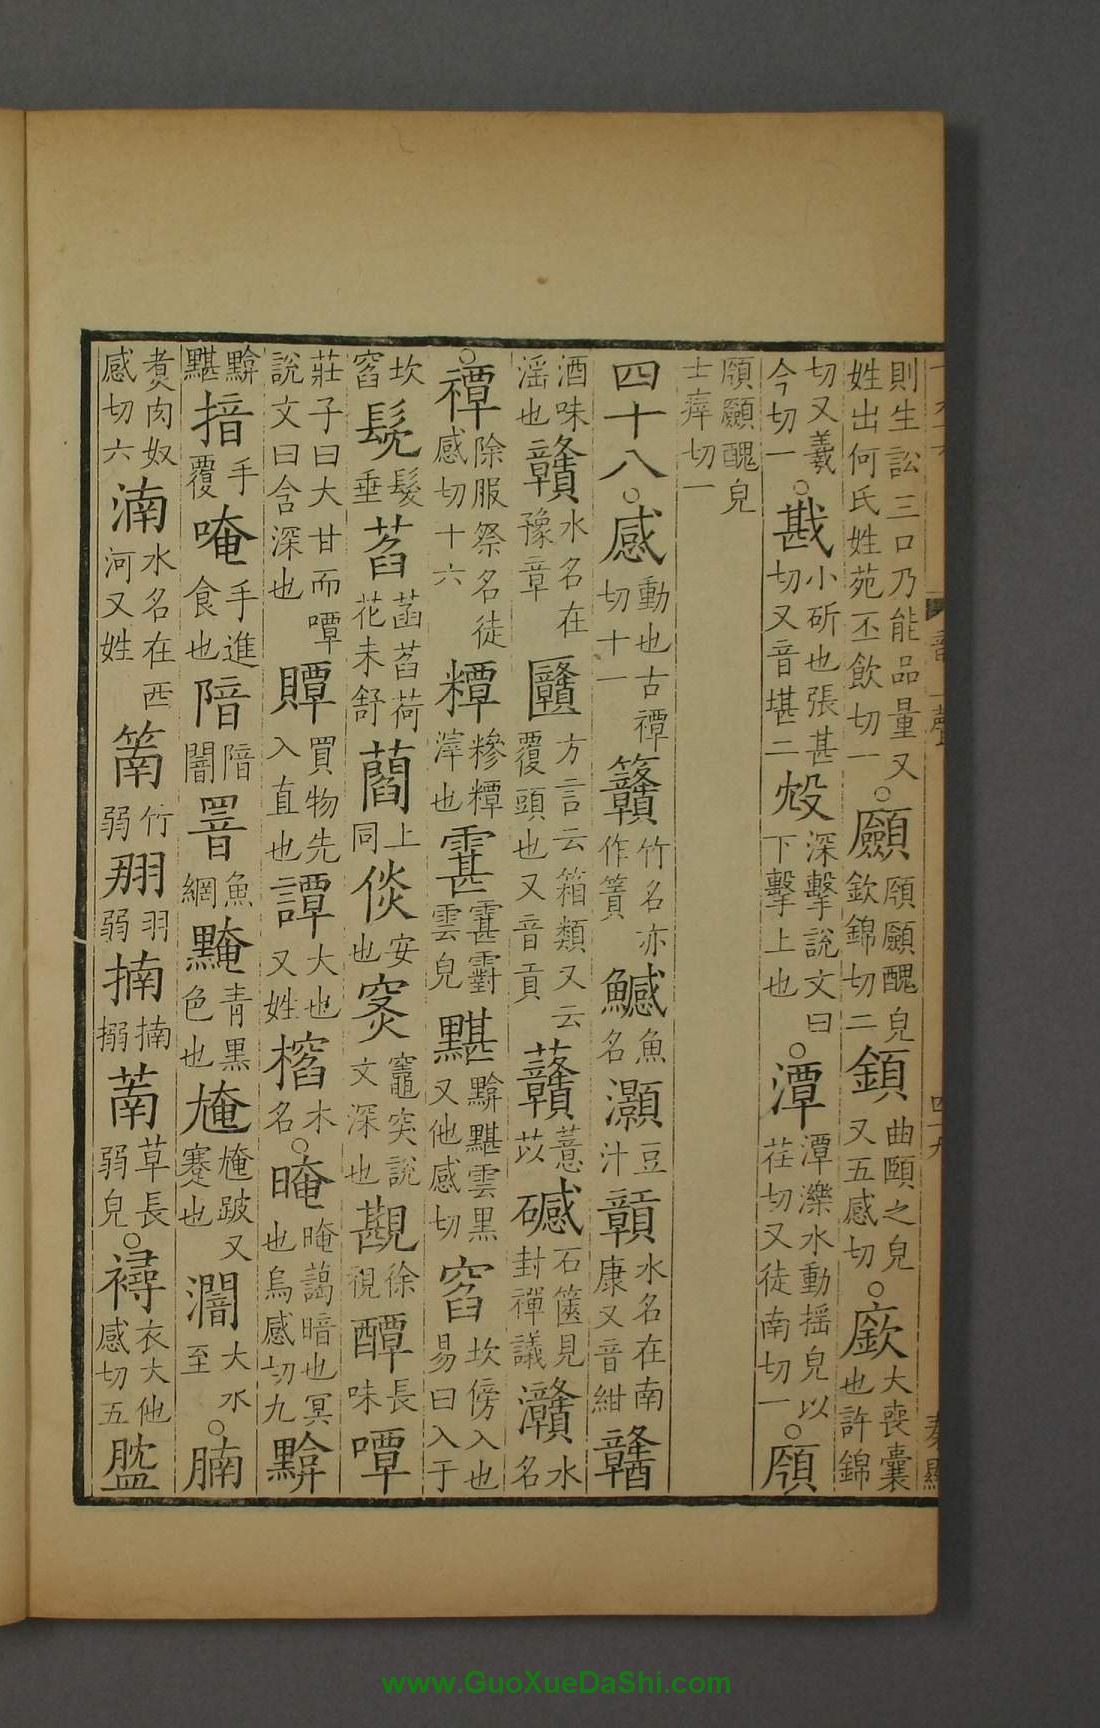 則生訟三口乃能品量又姓出何氏姓苑丕飲切一○顩頋顩醜皃欽錦切二顉曲頤之皃又五感切○廞大喪囊也許錦
切又羲今切一○戡小斫也張甚切又音堪二㱽深擊說文曰下擊上也○潭潭濼水動摇皃以荏切又徒南切一○頋
頋顩醜皃士痒切一
四十八○感動也古禫切十一䉺竹名亦作篢鱤魚名灝豆汁贑水名在南康又音紺
酒味淫也贛水名在豫章方言云箱類又云覆頭也又音貢薏苡䃭石篋見封禪議灨水名
○禫除服祭名徒感切十六糫糝糫滓也䨢䨢䨴雲皃黮黭黮雲黑又他感切窞坎傍入也易曰入于
坎窞髧髮垂萏菡萏荷花未舒藺上同倓安也窔竈突說文深也徐視醰長味嘾
莊子曰大甘而嘾說文曰含深也贉買物先入直也譚大也又姓橝木名○晻晻藹暗也冥也烏感切九黭
黭黮揞手覆唵手進食也陪陪闇罯魚網黤青黑色也㛪跛又蹇也濶大水至○腩
煮肉奴感切六湳水名在西河又姓䈒竹弱䎃羽弱揇揇搦萳草長弱皃○襑衣大他感切五䏙
www.GuoXueDaShi.com